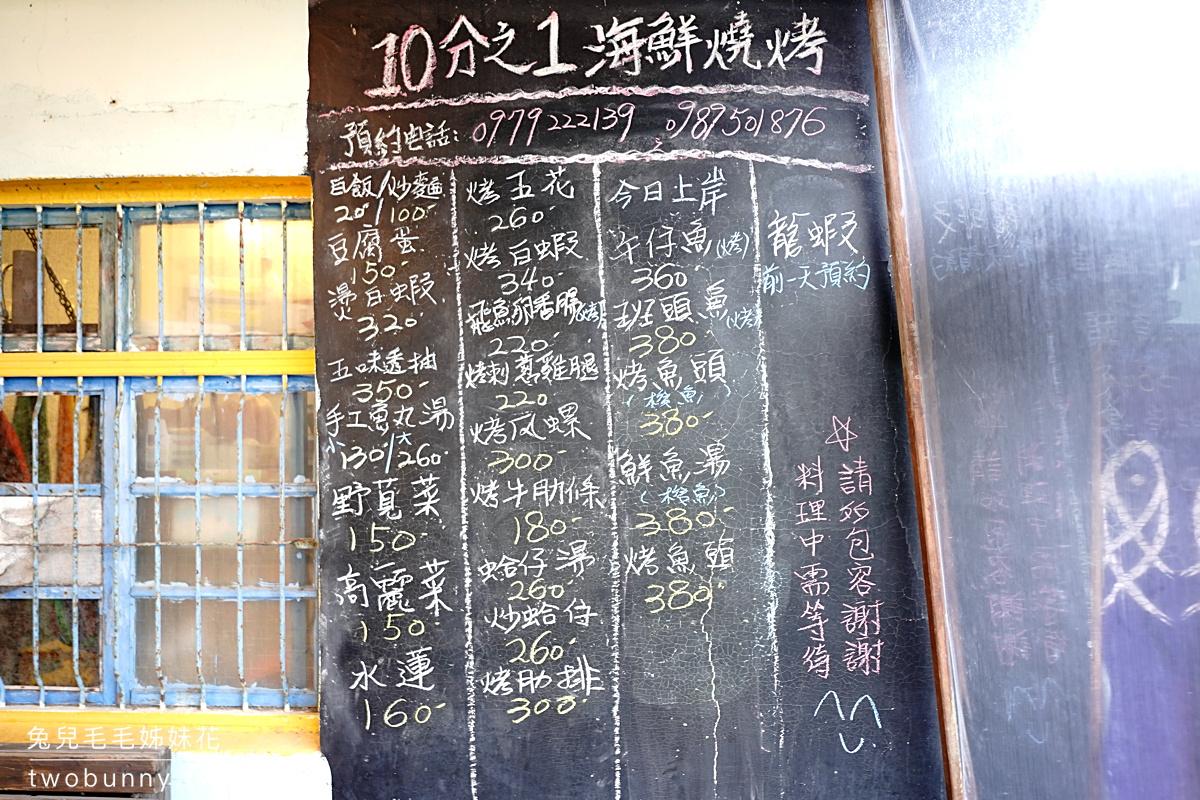 10分之1海鮮燒烤
預約電話: 0979222139 0989501876
白飯/炒麵
20/100
豆腐蛋
150
燙白蝦
320
五味透抽
350
手工魚丸湯
小130/大260
野莧菜
150
高麗菜
150
水蓮
160
烤五花
260
烤白蝦
340
飛魚卵香腸(烤)
220
烤刺蔥雞腿
220
烤风螺
300
烤牛肋條
180
蛤仔湯
260
炒蛤仔
260
烤肋排
300
今日上岸
午仔魚(烤)
360
班頭魚(烤)
380
烤魚頭
380
鮮魚湯
380
烤魚頭
380
龍蝦
前一天預約
☆請多包容謝謝
料理中需等待
兔兒毛毛姊妹花
twobunny